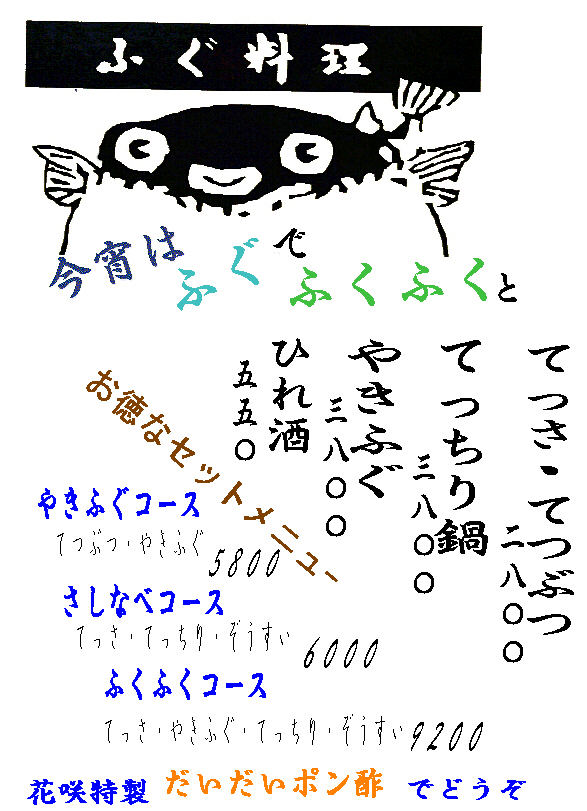 ふぐ料理
今宵はふぐでふくふくと
てっさ・てつぶつ
二八〇〇
てっちり鍋
三八〇〇
やきふぐ
三八〇〇
ひれ酒
五五〇
お徳なセットメニュー
やきふぐコース
てつぶつ・やきふぐ
5800
さしなべコース
てっさ・てっちり・ぞうすい
6000
ふくふくコース
てっさ・やきふぐ・てっちり・ぞうすい
9200
花咲特製 だいだいポン酢 でどうぞ